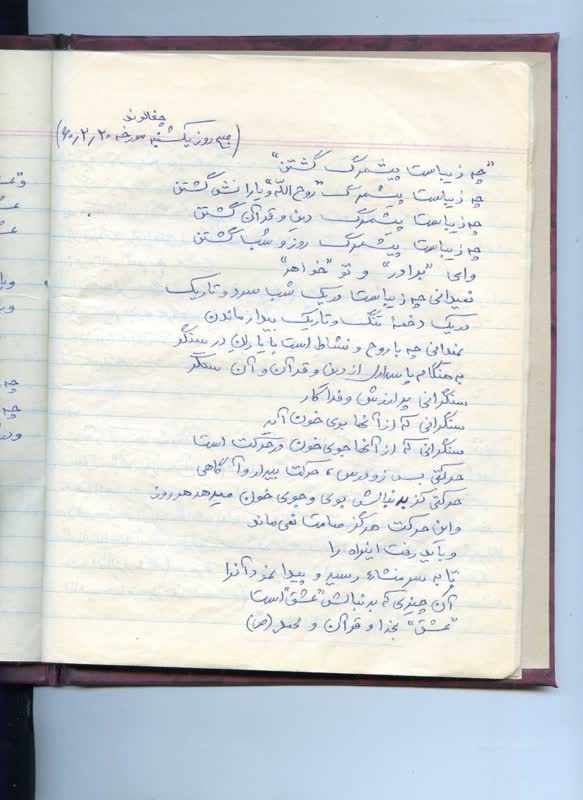 چغالوند
(نامه روز یکشنبه مورخه ۶۰٫۲٫۲۰)
"چه زیباست پیشمرگ گشتن"
چه زیباست پیشمرگ "روح الله" و یارانش گشتن
چه زیباست پیشمرگ دین و قرآن گشتن
چه زیباست پیشمرگ روز و شب گشتن
وای "برادر" و تو "خواهر"
نمیدانی چه زیباست در یک شب سرد و تاریک
در یک دخمهٔ تنگ و تاریک بیدار ماندن
نمیدانی چه با روح و نشاط است با یاران در سنگر
به هنگام پاسداری از دین و قرآن و آن سنگر
سنگرانی پر ارزش و فداکار
سنگرانی که از آنها بوی خون آید
سنگرانی که از آنها جوی خون در حرکت است
حرکتی بس زودرس، حرکت بیدار و آگاهی
حرکتی کز بدنبالش بوی و جوی خون میدهد هر روز
و این حرکت هرگز صامت نمی‌ماند
و باید رفت اینراه را
تا به سر منشاء رسید و پیدا نمود آنرا
آن چیزی که بدنبالش "عشق" است
"عشق" بخدا و قرآن و محمد (ص)